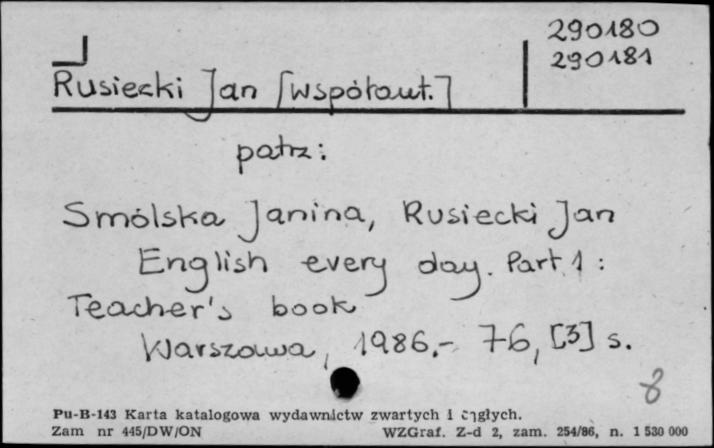 290180
290181
Rusiecki Jan [współaut.]
patrz:
Smólska Janina, Rusiecki Jan
English every day. Part 1 :
Teacher's book
Warszawa, 1986.- 76, [3] s.
8
Pu-B-143 Karta katalogowa wydawnictw zwartych i ciągłych.
Zam nr 445/DW/ON WZGraf. Z-d 2, zam. 254/86, n. 1 530 000